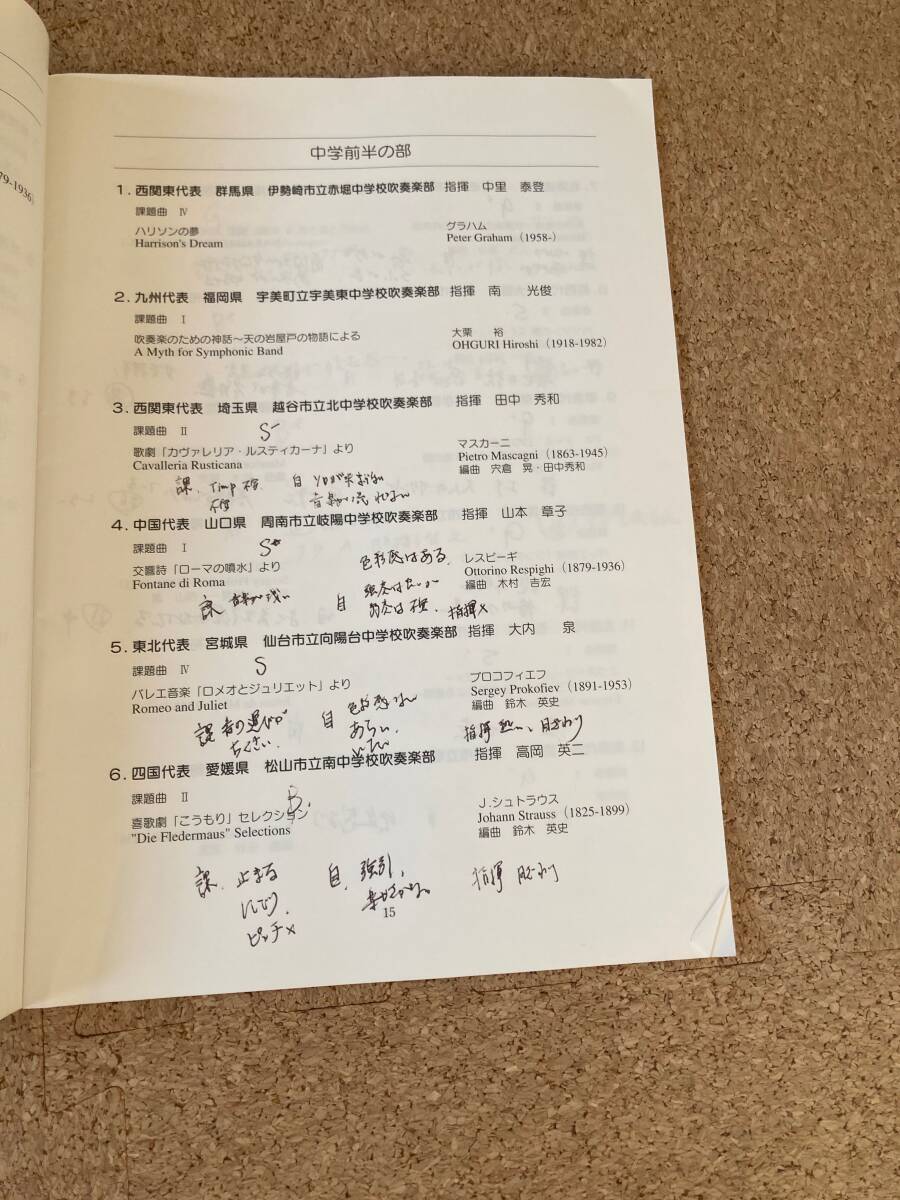 79-1936)
中学前半の部
1. 西関東代表 群馬県 伊勢崎市立赤堀中学校吹奏楽部 指揮 中里 泰登
課題曲 Ⅳ
ハリソンの夢 グラハム
Harrison's Dream Peter Graham (1958-)
2. 九州代表 福岡県 宇美町立宇美東中学校吹奏楽部 指揮 南 光俊
課題曲 Ⅰ
吹奏楽のための神話～天の岩屋戸の物語による 大栗 裕
A Myth for Symphonic Band OHGURI Hiroshi (1918-1982)
3. 西関東代表 埼玉県 越谷市立北中学校吹奏楽部 指揮 田中 秀和
課題曲 Ⅱ S
歌劇「カヴァレリア・ルスティカーナ」より マスカーニ
Cavalleria Rusticana Pietro Mascagni (1863-1945)
編曲 宍倉 晃・田中秀和
課. Timp 自 ソロが
4. 中国代表 山口県 周南市立岐陽中学校吹奏楽部 指揮 山本 章子
課題曲 Ⅰ S 色彩感はある.
交響詩「ローマの噴水」より レスピーギ
Fontane di Roma Ottorino Respighi (1879-1936)
編曲 木村 吉宏
自 指揮×
5. 東北代表 宮城県 仙台市立向陽台中学校吹奏楽部 指揮 大内 泉
課題曲 Ⅳ S
バレエ音楽「ロメオとジュリエット」より プロコフィエフ
Romeo and Juliet Sergey Prokofiev (1891-1953)
編曲 鈴木 英史
課 音の運びが 自 指揮
あらい.
6. 四国代表 愛媛県 松山市立南中学校吹奏楽部 指揮 高岡 英二
課題曲 Ⅱ B.
喜歌劇「こうもり」セレクション J.シュトラウス
"Die Fledermaus" Selections Johann Strauss (1825-1899)
編曲 鈴木 英史
課. 止まる 自. 強引. 指揮
ピッチ×
15